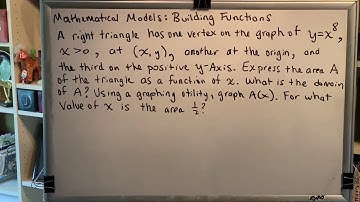 Mathematical Models: Building Functions
A right triangle has one vertex on the graph of y=x⁸,
x>0, at (x,y), another at the origin, and
the third on the positive y-Axis. Express the area A
of the triangle as a function of x. What is the domain
of A? Using a graphing utility, graph A(x). For what
Value of x is the area 1/2?